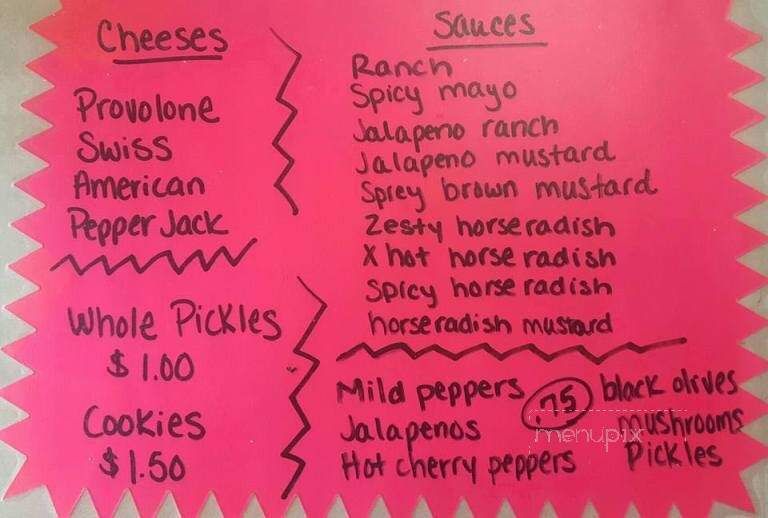 Cheeses
Provolone
Swiss
American
Pepper Jack
Whole Pickles
$1.00
Cookies
$1.50
Sauces
Ranch
Spicy mayo
Jalapeno ranch
Jalapeno mustard
Spicy brown mustard
Zesty horseradish
X hot horse radish
Spicy horse radish
horseradish mustard
Mild peppers
Jalapenos
Hot cherry peppers
.75
black olives
mushrooms
Pickles
menupix